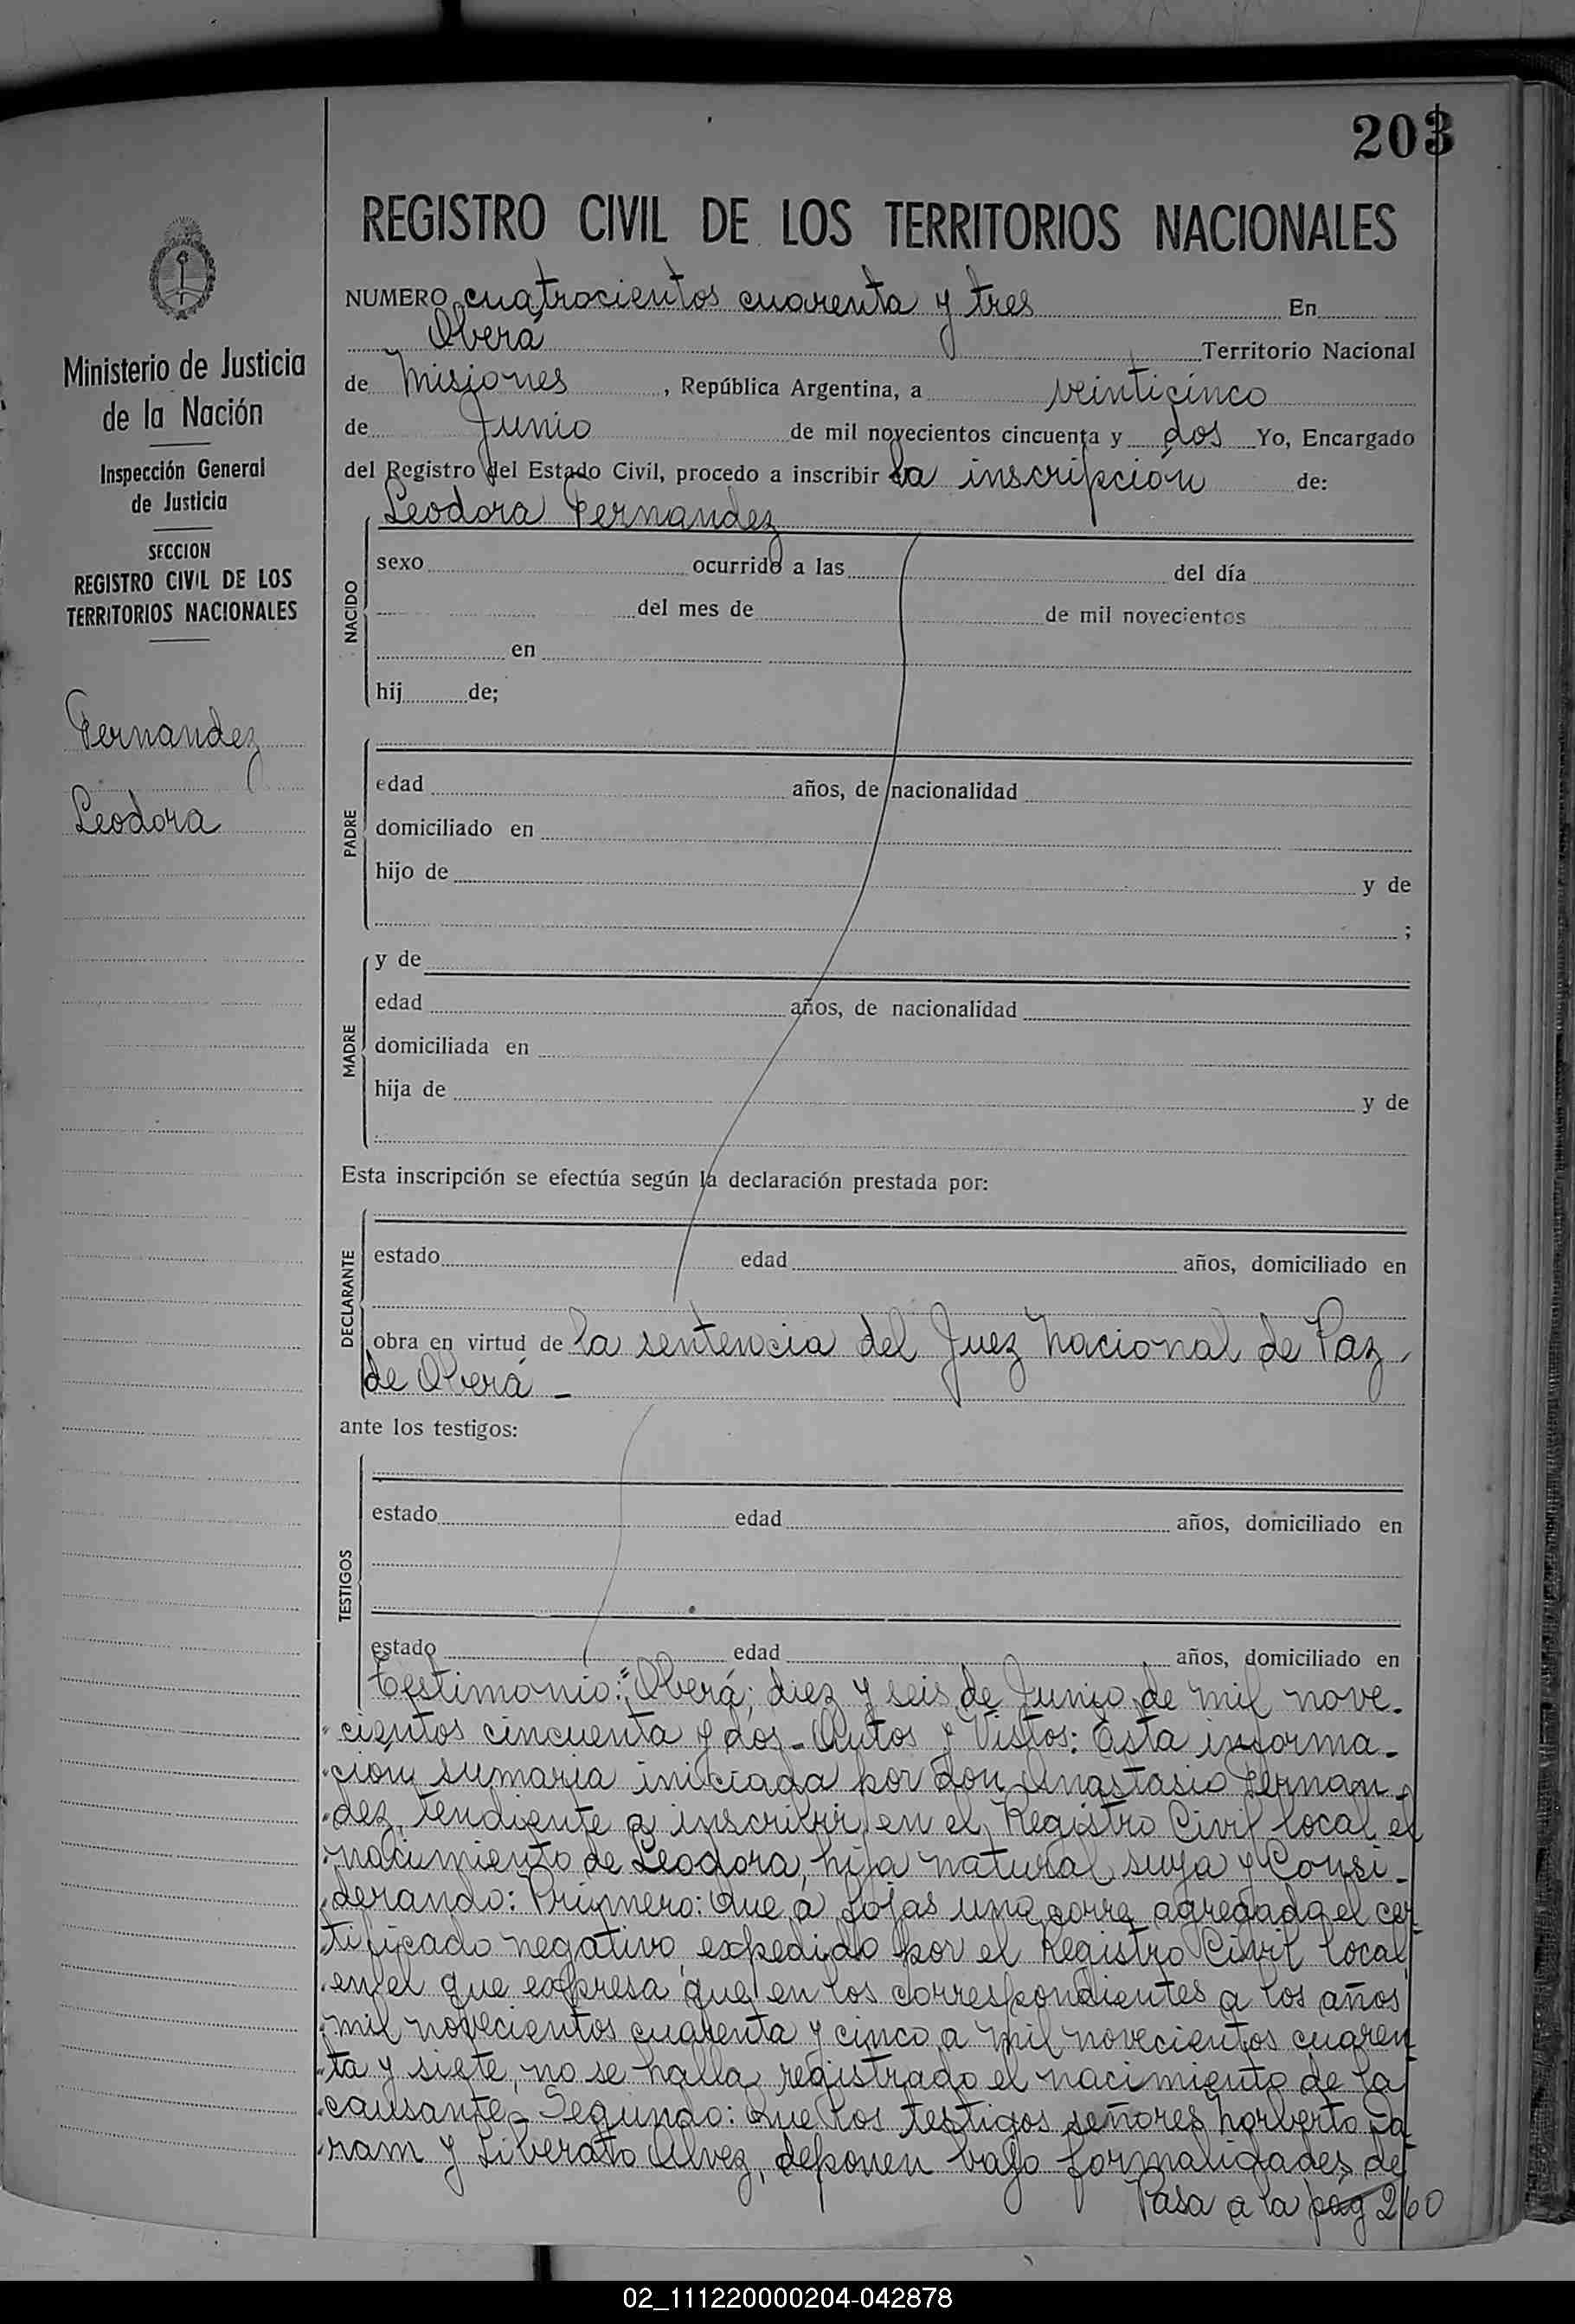 203
REGISTRO CIVIL DE LOS TERRITORIOS NACIONALES
NUMERO cuatrocientos cuarenta y tres En
Oberá Territorio Nacional
de Misiones, República Argentina, a veinticinco
de Junio de mil novecientos cincuenta y dos Yo, Encargado
del Registro del Estado Civil, procedo a inscribir la inscripción de:
Leodora Fernandez
NACIDO
sexo ocurrido a las del día
del mes de de mil novecientos
en
hij de;
PADRE
edad años, de nacionalidad
domiciliado en
hijo de y de
;
MADRE
y de
edad años, de nacionalidad
domiciliada en
hija de y de
Esta inscripción se efectúa según la declaración prestada por:
DECLARANTE
estado edad años, domiciliado en
obra en virtud de la sentencia del Juez Nacional de Paz
de Oberá -
ante los testigos:
TESTIGOS
estado edad años, domiciliado en
estado edad años, domiciliado en
Testimonio: "Oberá, diez y seis de Junio de mil nove-
"cientos cincuenta y dos - Autos y Vistos: Esta informa-
"ción sumaria iniciada por don Anastasio Fernan-
"dez, tendiente a inscribir en el Registro Civil local el
"nacimiento de Leodora, hija natural suya y Consi-
"derando: Primero: Que a fojas una corre agregada el cer
"tificado negativo expedido por el Registro Civil local,
"en el que expresa que en los correspondientes a los años
"mil novecientos cuarenta y cinco a mil novecientos cuaren
"ta y siete, no se halla registrado el nacimiento de la
"causante - Segundo: Que los testigos señores Norberto
"ram y Liberato Alvez, deponen bajo formalidades de
Pasa a la pág 260
Ministerio de Justicia
de la Nación
Inspección General
de Justicia
SECCION
REGISTRO CIVIL DE LOS
TERRITORIOS NACIONALES
Fernandez
Leodora
02_111220000204-042878